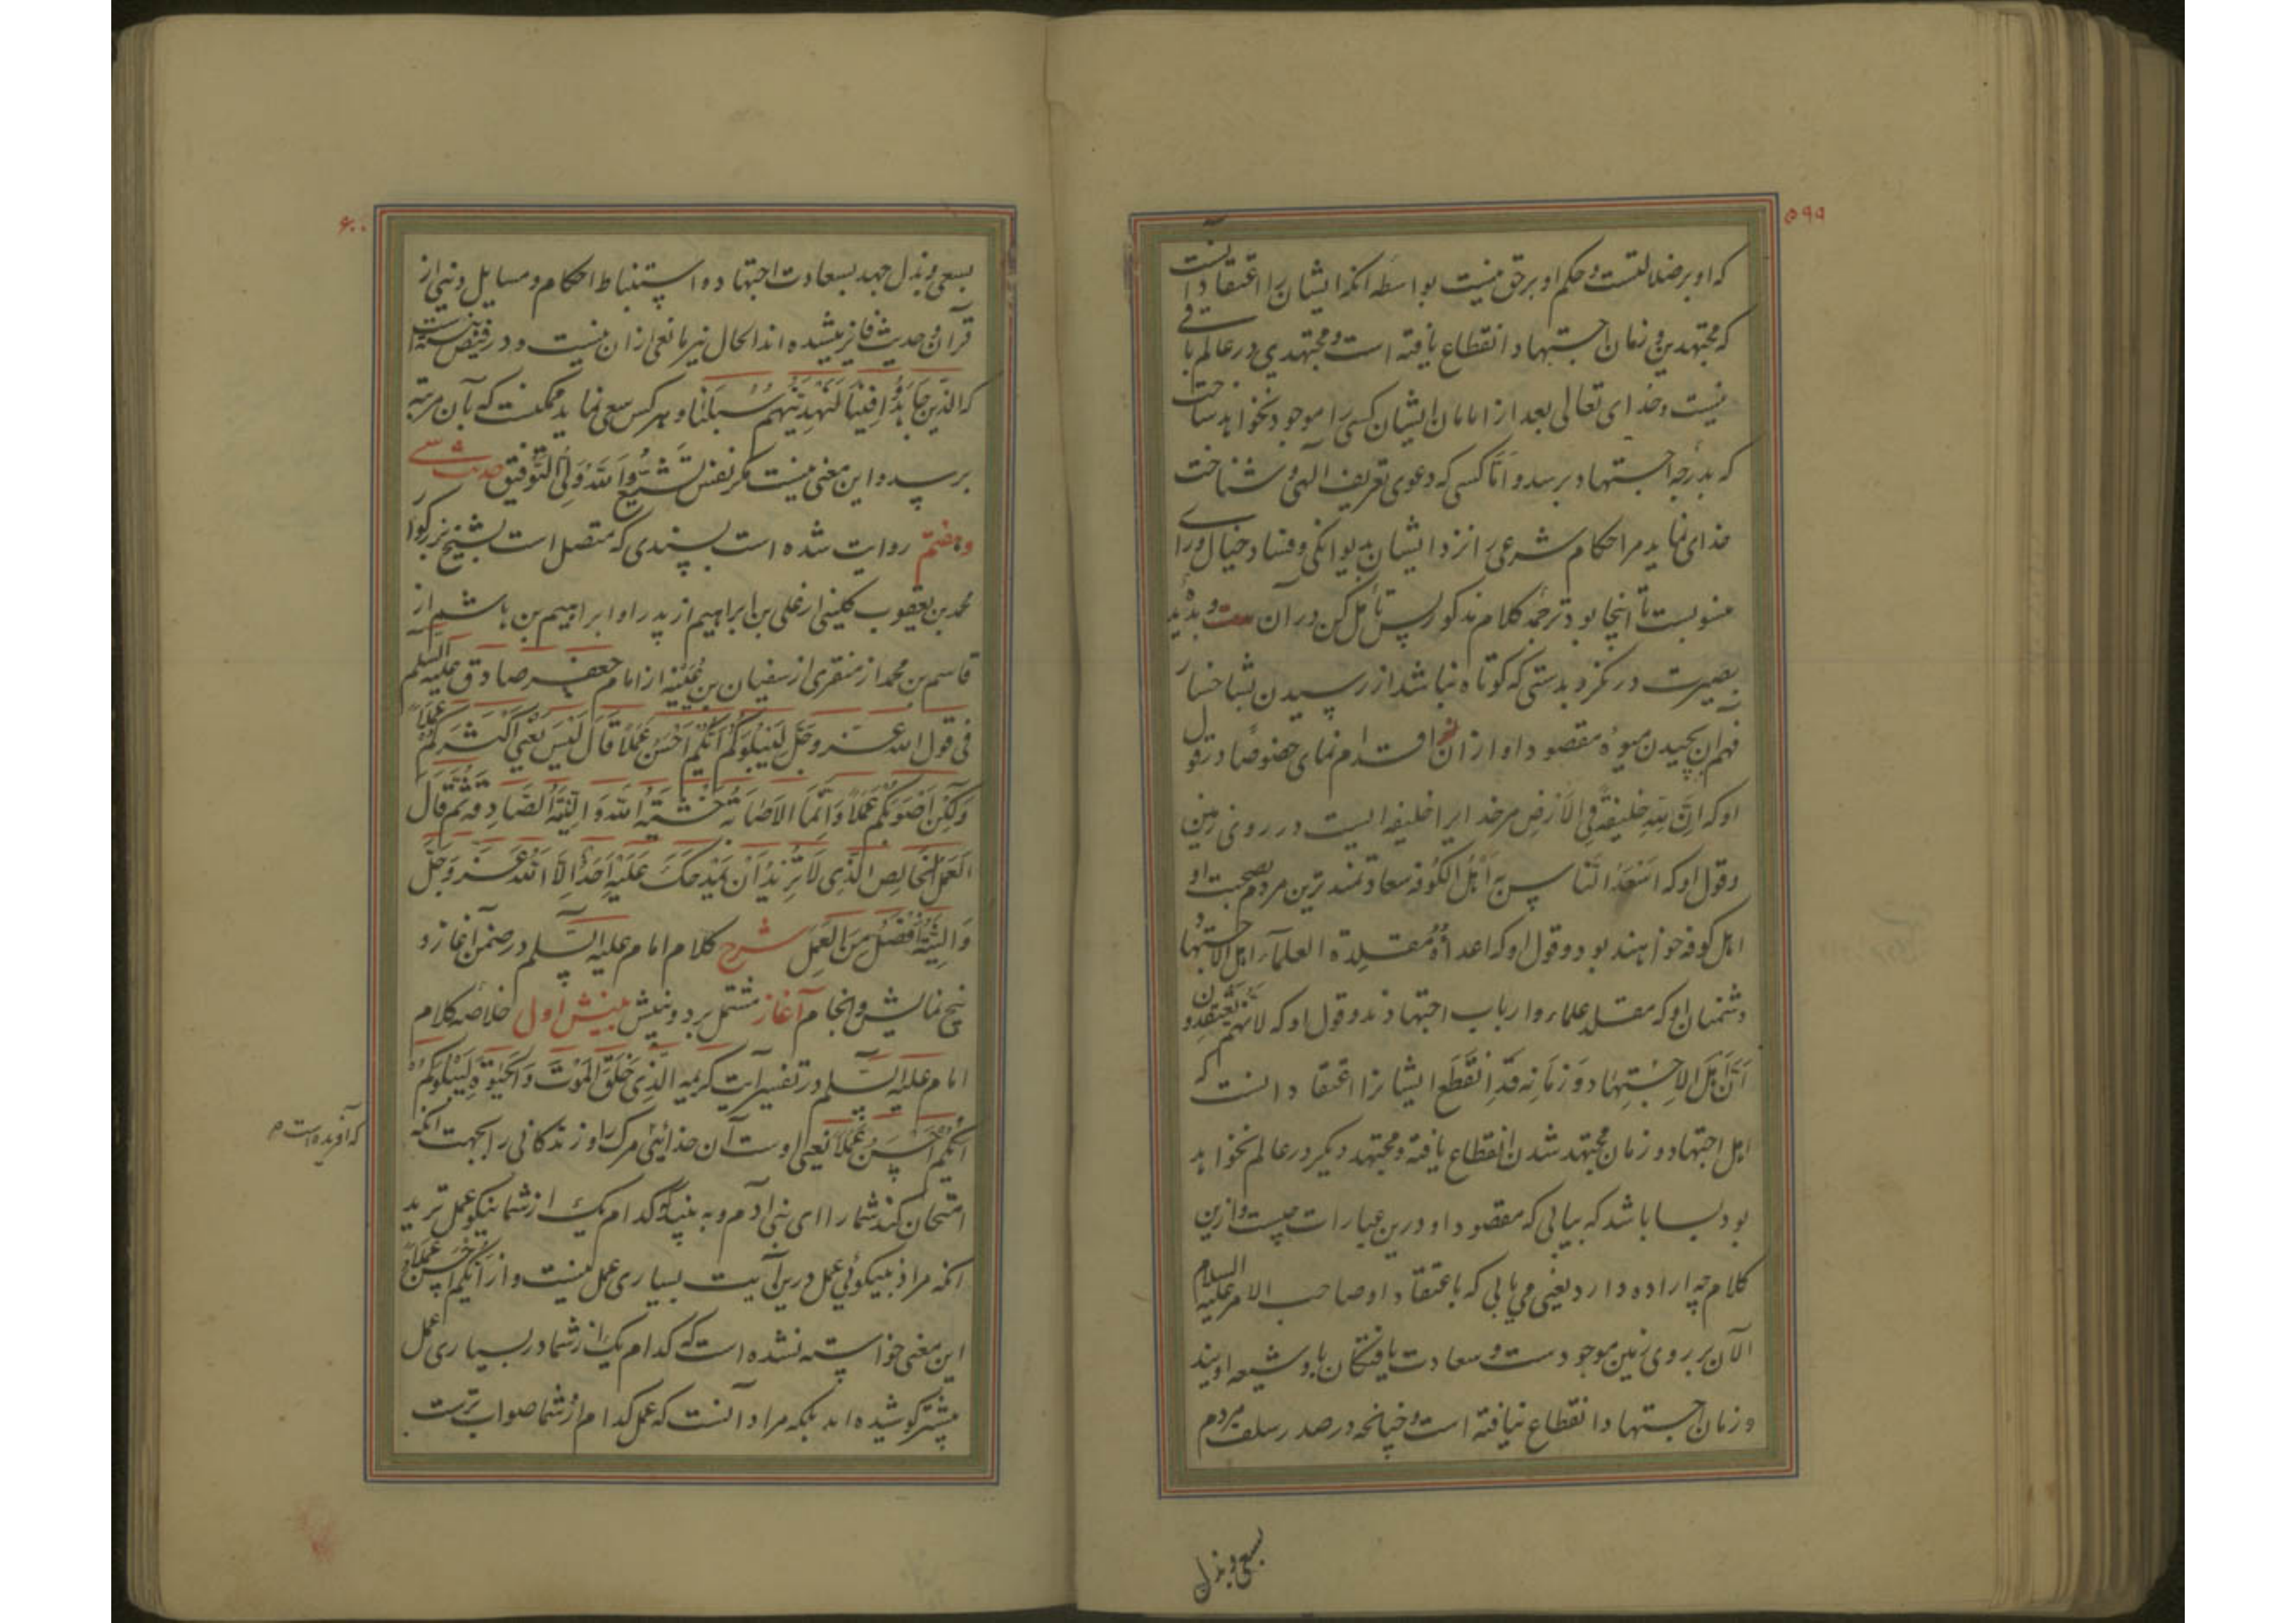 ۵۹۹
که او بر ضلالتست و حکم او بر حق نیست بواسطه انکه ایشان را اعتقاد آنست
که مجتهدین و زمان اجتهاد انقطاع یافته است و مجتهدی در عالم باقی
نیست و خدای تعالی بعد از امامان ایشان کسی را موجود نخواهد ساخت
که بدرجه اجتهاد برسد و امّا کسی که دعوی تعریف الهی و شناخت
خدای نماید مر احکام شرعی را نزد ایشان بدیوانکی و فساد خیال و رای
منسوبست تا اینجا بود ترجمه کلام مذکور پس تأمل کن در آن و بدیده
بصیرت درنکر و بدستی که کوتاه نباشد از رسیدن بشاخسار
فهم ان بچیدن میوه مقصود او از ان اقدام نمای خصوصا در قول
او که ان لله خلیفة فی الارض مر خدایرا خلیفه ایست در روی زمین
و قول او که اسعد الناس به اهل الکوفه سعادتمندترین مردم بصحبت او
اهل کوفه خواهند بود و قول او که اعداؤه مقلدة العلمآء اهل الاجتهاد
دشمنان او که مقلد علماء و ارباب اجتهادند و قول او که لانهم یعتقدون
ان اهل الاجتهاد و زمانه قد انقطع ایشانرا اعتقاد انست که
اهل اجتهاد و زمان مجتهد شدن انقطاع یافته و مجتهد دیکر در عالم نخواهد
بود بسا باشد که بیابی که مقصود او درین عبارات چیست و ازین
کلام چه اراده دارد یعنی می یابی که باعتقاد او صاحب الامر علیه السلام
الآن بر روی زمین موجودست و سعادت یافتکان باو شیعه اویند
و زمان اجتهاد انقطاع نیافته است و چنانچه در صدر سلف مردم
بسعی و بذل
۶۰۰
بسعی و بذل جهد بسعادت اجتهاد و استنباط احکام و مسایل دینی از
قرآن و حدیث فایز میشده اند الحال نیز مانعی از ان نیست و در فیض بسته
که الذین جاهدوا فینا لنهدینهم سبلنا و هر کس سعی نماید ممکنست که بآن مرتبه
برسد و این معنی نیست مکر نفس تشیع و الله ولی التوفیق حدیث سی
و هفتم روایت شده است بسندی که متصل است بشیخ بزرکوار
محمد بن یعقوب کلینی از علی بن ابراهیم از پدر او ابراهیم بن هاشم از
قاسم بن محمد از منقری از سفیان بن عُیَیْنه از امام جعفر صادق علیه السلم
فی قول الله عز و جل لیبلوکم ایکم احسن عملا قال لیس یعنی اکثرکم عملاً
ولکن اصوبکم عملاً و انما الاصابة خشیة الله و النیة الصادقة ثم قال
العمل الخالص الذی لا ترید ان یمدحک علیه احد الا الله عز و جل
و النیة افضل من العمل شرح کلام امام علیه السلم در ضمن اغاز و
پنج نمایش و انجام آغاز مشتمل بر دو بینش بینش اول خلاصه کلام
امام علیه السلم در تفسیر آیت کریمه الذی خلق الموت و الحیوة لیبلوکم
ایکم احسن عملا یعنی اوست آن خدائیی مرک را و زندکانی را بجهت انکه
که آفریده است م
امتحان کند شما را ای بنی ادم و به بیند که کدام یک از شما نیکو عمل ترید
انکه مراد از نیکوئی عمل درین آیت بسیاری عمل نیست و از ایکم احسن عملا
این معنی خواسته نشده است که کدام یک از شما در بسیاری عمل
بیشتر کوشیده اند بلکه مراد آنست که عمل کدام از شما صواب ترست